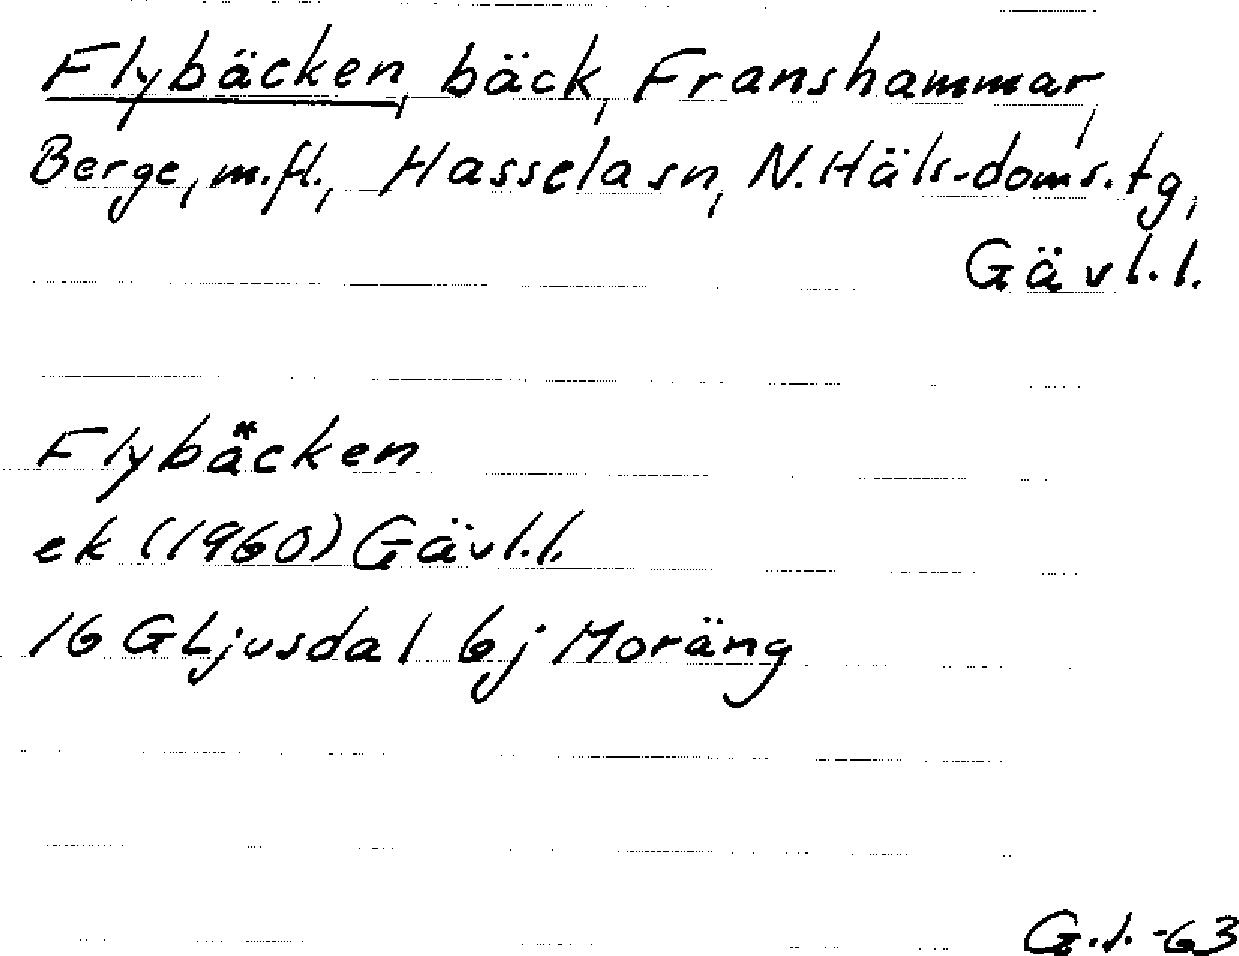 Flybäcken, bäck, Franshammar,
Berge, m.fl., Hassela sn, N. Häls. doms. tg,
Gävl. l.
Flybäcken
ek (1960) Gävl. l.
16 G Ljusdal 6j Moräng
G.l. -63